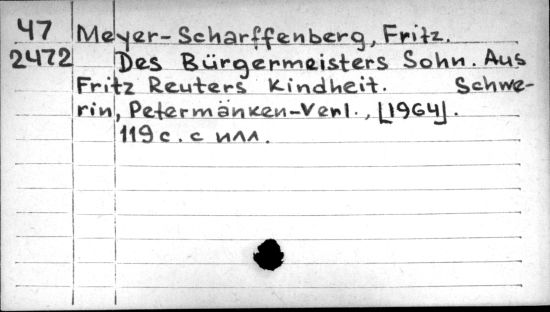 47 Meyer-Scharffenberg, Fritz.
2472 Des Bürgermeisters Sohn. Aus
Fritz Reuters Kindheit. Schwe-
rin, Petermänken-Verl., [1964].
119 с. с илл.